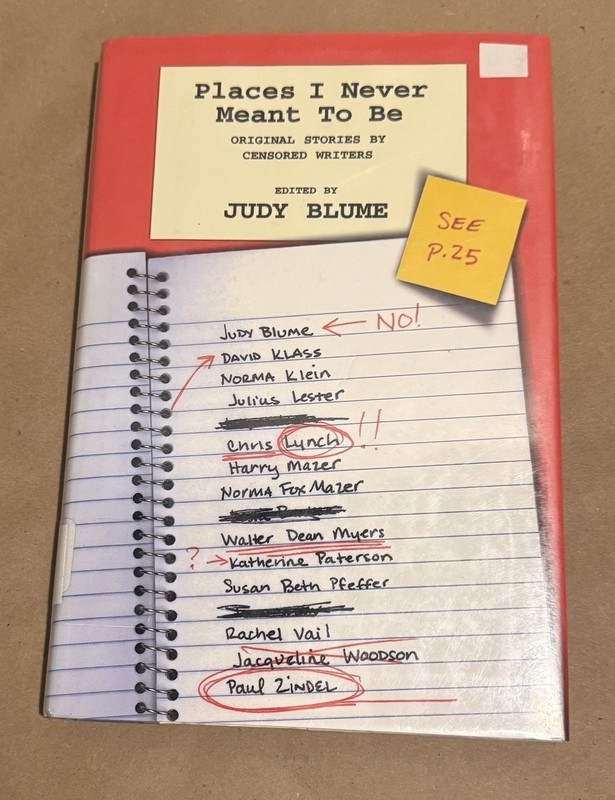 Places I Never
Meant To Be
ORIGINAL STORIES BY
CENSORED WRITERS
EDITED BY
JUDY BLUME
SEE
P.25
JUDY BLUME ← NO!
DAVID KLASS
NORMA Klein
Julius Lester
Chris Lynch !!
Harry Mazer
NORMA FOX MAZER
Walter Dean Myers
? → Katherine Paterson
Susan Beth Pfeffer
Rachel Vail
Jacqueline WOODSON
Paul ZINDEL